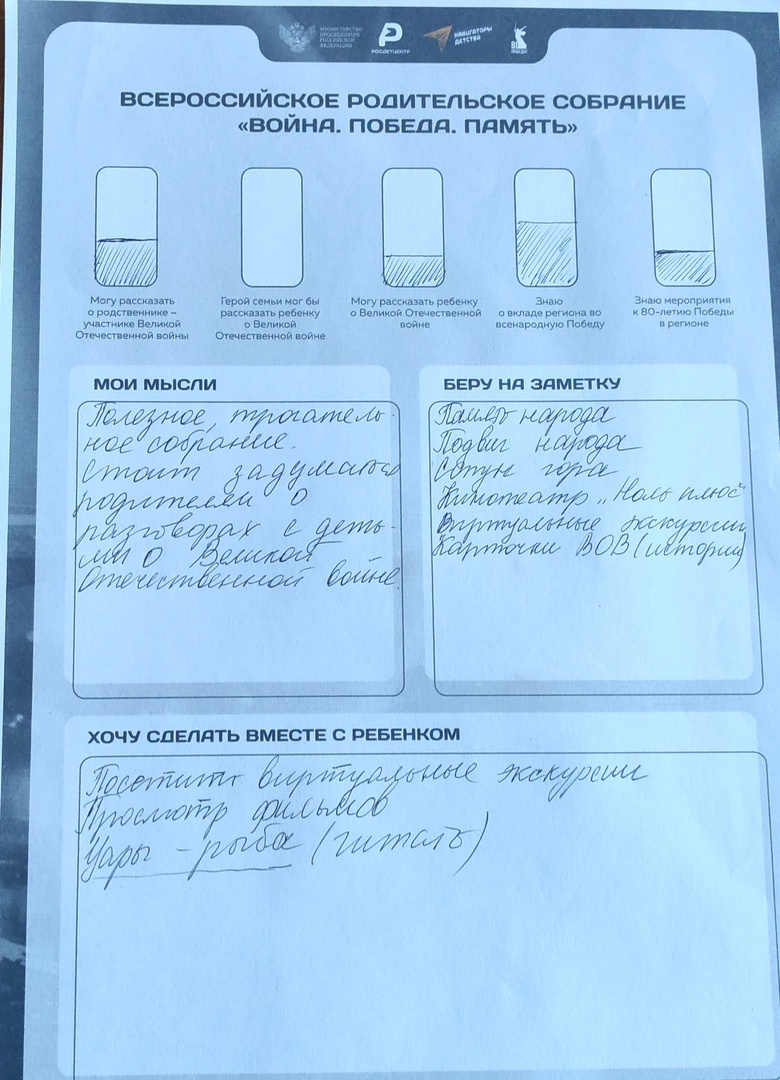 МИНИСТЕРСТВО
ПРОСВЕЩЕНИЯ
РОССИЙСКОЙ
ФЕДЕРАЦИИ
РОСДЕТЦЕНТР
НАВИГАТОРЫ
ДЕТСТВА
80
ПОБЕДА!
ВСЕРОССИЙСКОЕ РОДИТЕЛЬСКОЕ СОБРАНИЕ
«ВОЙНА. ПОБЕДА. ПАМЯТЬ»
Могу рассказать
о родственнике –
участнике Великой
Отечественной войны
Герой семьи мог бы
рассказать ребенку
о Великой
Отечественной войне
Могу рассказать ребенку
о Великой Отечественной
войне
Знаю
о вкладе региона во
всенародную Победу
Знаю мероприятия
к 80-летию Победы
в регионе
МОИ МЫСЛИ
Полезное, трогатель-
ное собрание.
Стоит задуматься
родителям о
разговорах с деть-
ми о Великой
Отечественной войне.
БЕРУ НА ЗАМЕТКУ
Память народа
Подвиг народа
Сапун гора
Кинотеатр „Ноль плюс"
Виртуальные экскурсии
Карточки ВОВ (истории)
ХОЧУ СДЕЛАТЬ ВМЕСТЕ С РЕБЕНКОМ
Посетить виртуальные экскурсии
Просмотр фильмов
рыба (читать)